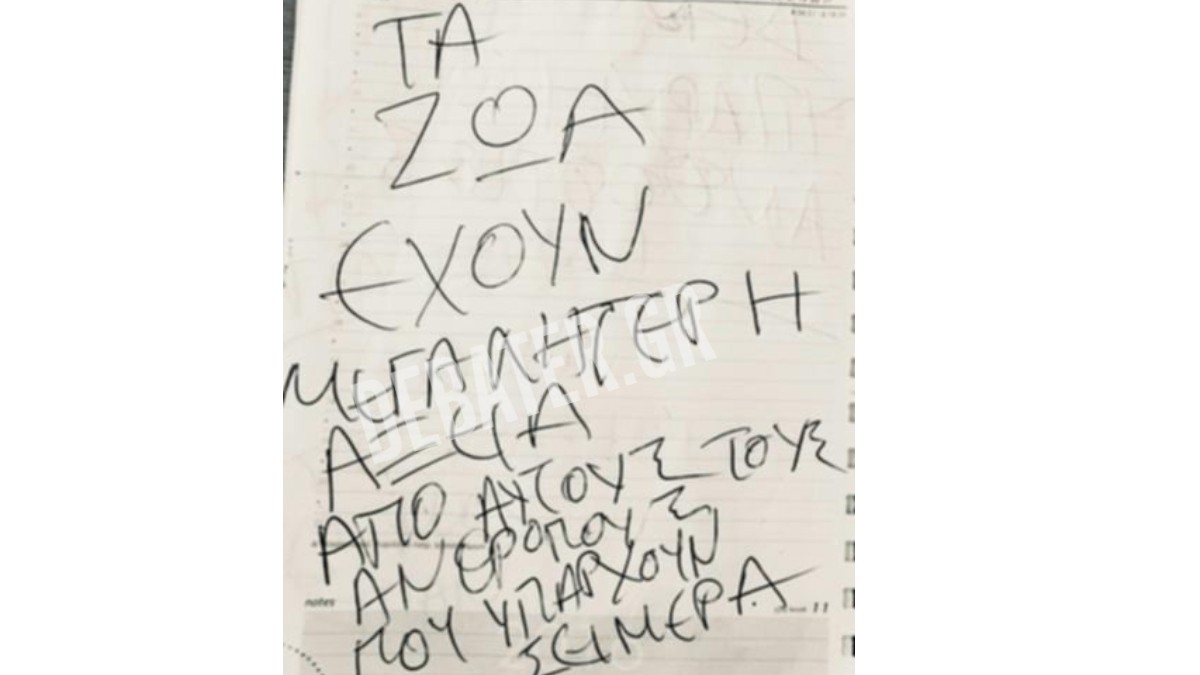 ΤΑ
ΖΩΑ
ΕΧΟΥΝ
ΜΕΓΑΛΗΤΕΡΗ
ΑΞΙΑ
ΑΠΟ ΑΥΤΟΥΣ ΤΟΥΣ
ΑΝΘΡΟΠΟΥΣ
ΠΟΥ ΥΠΑΡΧΟΥΝ
ΣΕΙΜΕΡΑ
DEBATER.GR
notes
11